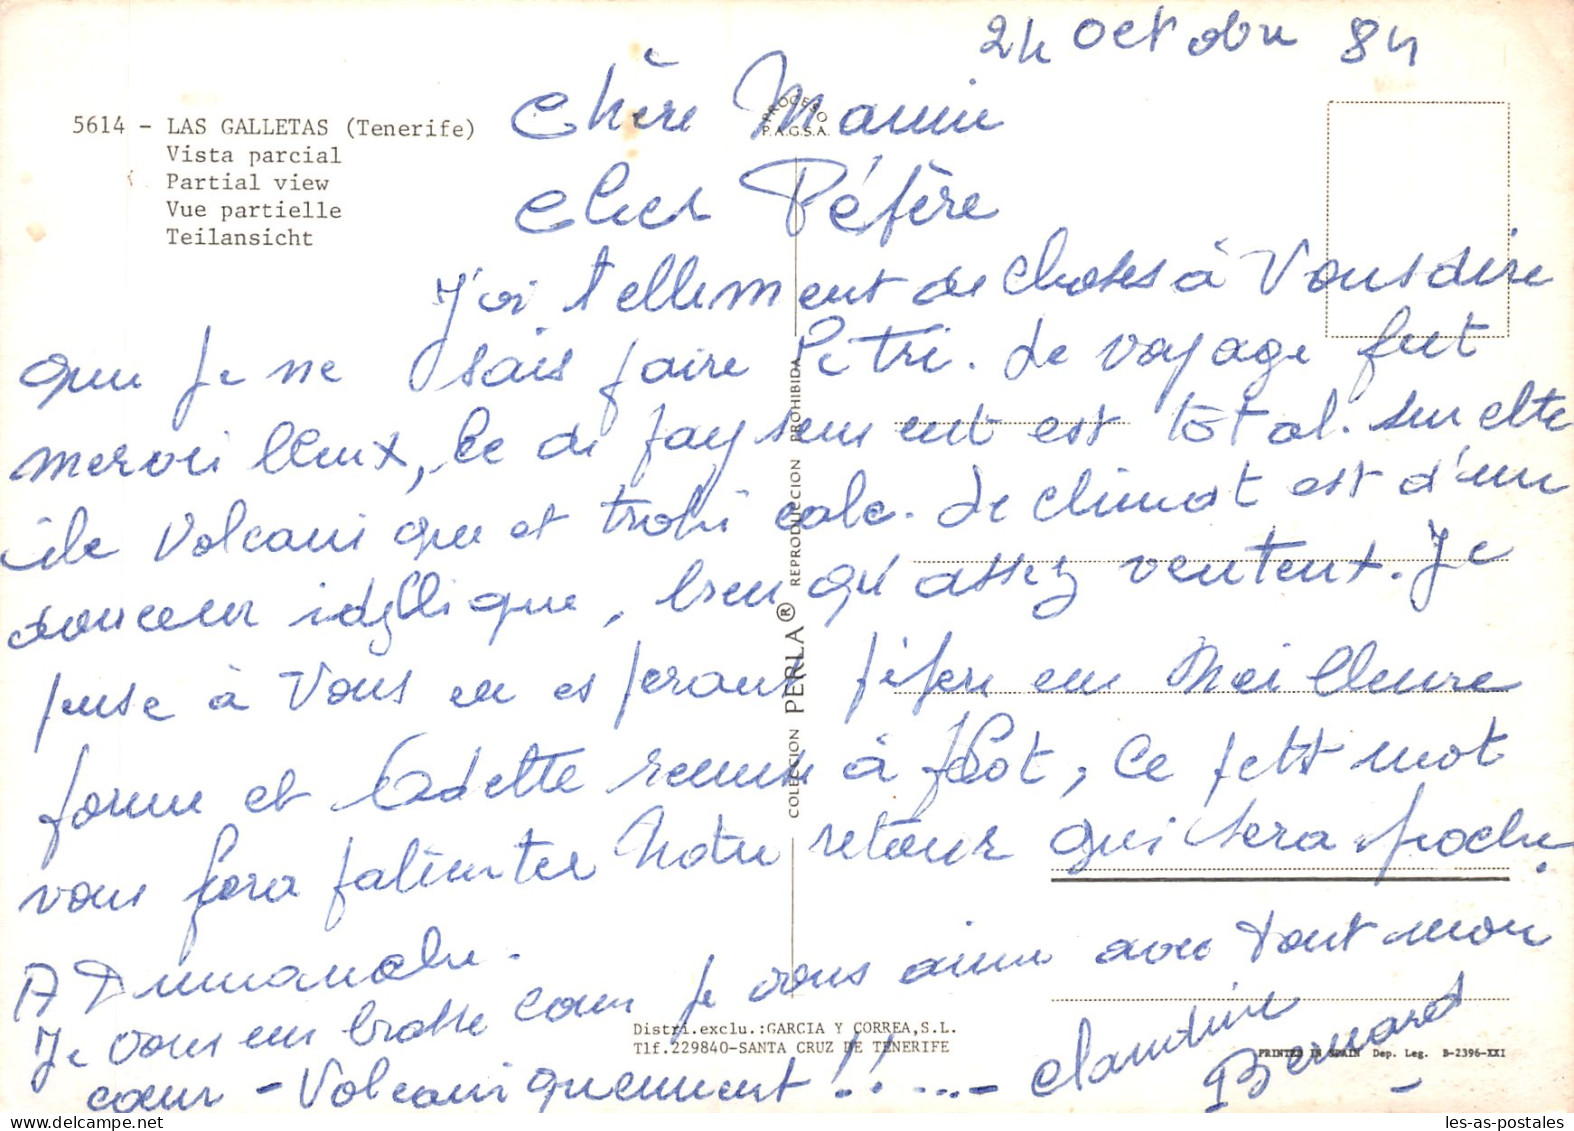 24 octobre 84
5614 - LAS GALLETAS (Tenerife)
Vista parcial
Partial view
Vue partielle
Teilansicht
PROCESO
P.A.G.S.A.
Chère Mamie
Cher Péfère
J'ai tellement de choses à Vous dire
que je ne sais faire le tri. Le voyage fut
merveilleux, le dépaysement est total. Sur cette
île Volcanique et tropicale. Le climat est d'une
douceur idyllique, bien qu'assez venteux. Je
pense à Vous en espérant Péfère en Meilleure
forme et Cadette remise à flot, Ce petit mot
vous fera patienter Notre retour qui sera proche.
A Dimanche.
Je vous embrasse comme je vous aime avec tout mon
cœur - Volcaniquement !! ..... -
Claudine
Bernard
COLECCION PERLA® REPRODUCCION PROHIBIDA
Distri.exclu.:GARCIA Y CORREA,S.L.
Tlf.229840-SANTA CRUZ DE TENERIFE
PRINTED IN SPAIN Dep. Leg. B-2396-XXI
les-as-postales